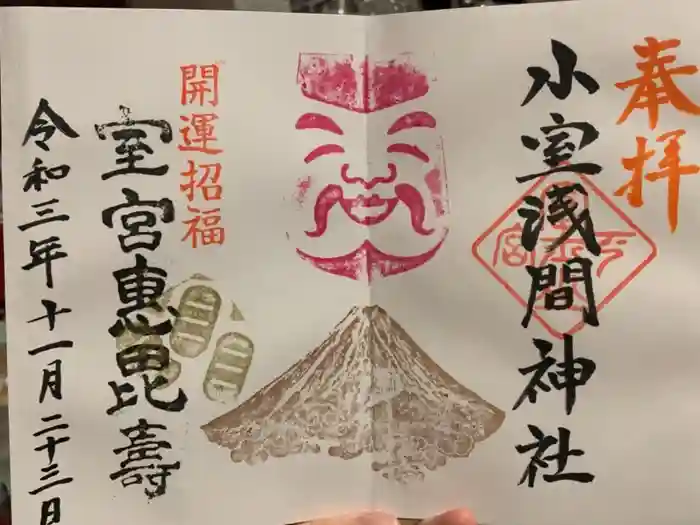 奉拝
小室浅間神社
開運招福
室宮惠毘壽
令和三年十一月二十三日